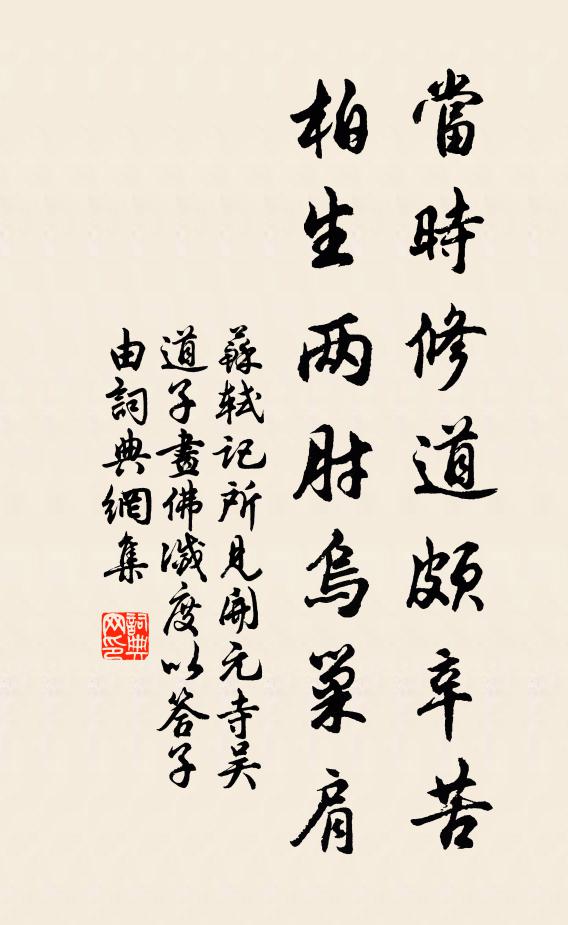 當時修道頗辛苦
柏生两肘烏巢肩
蘇軾記所見開元寺吴
道子畫佛滅度以答子
由詞典網集
詞典网印